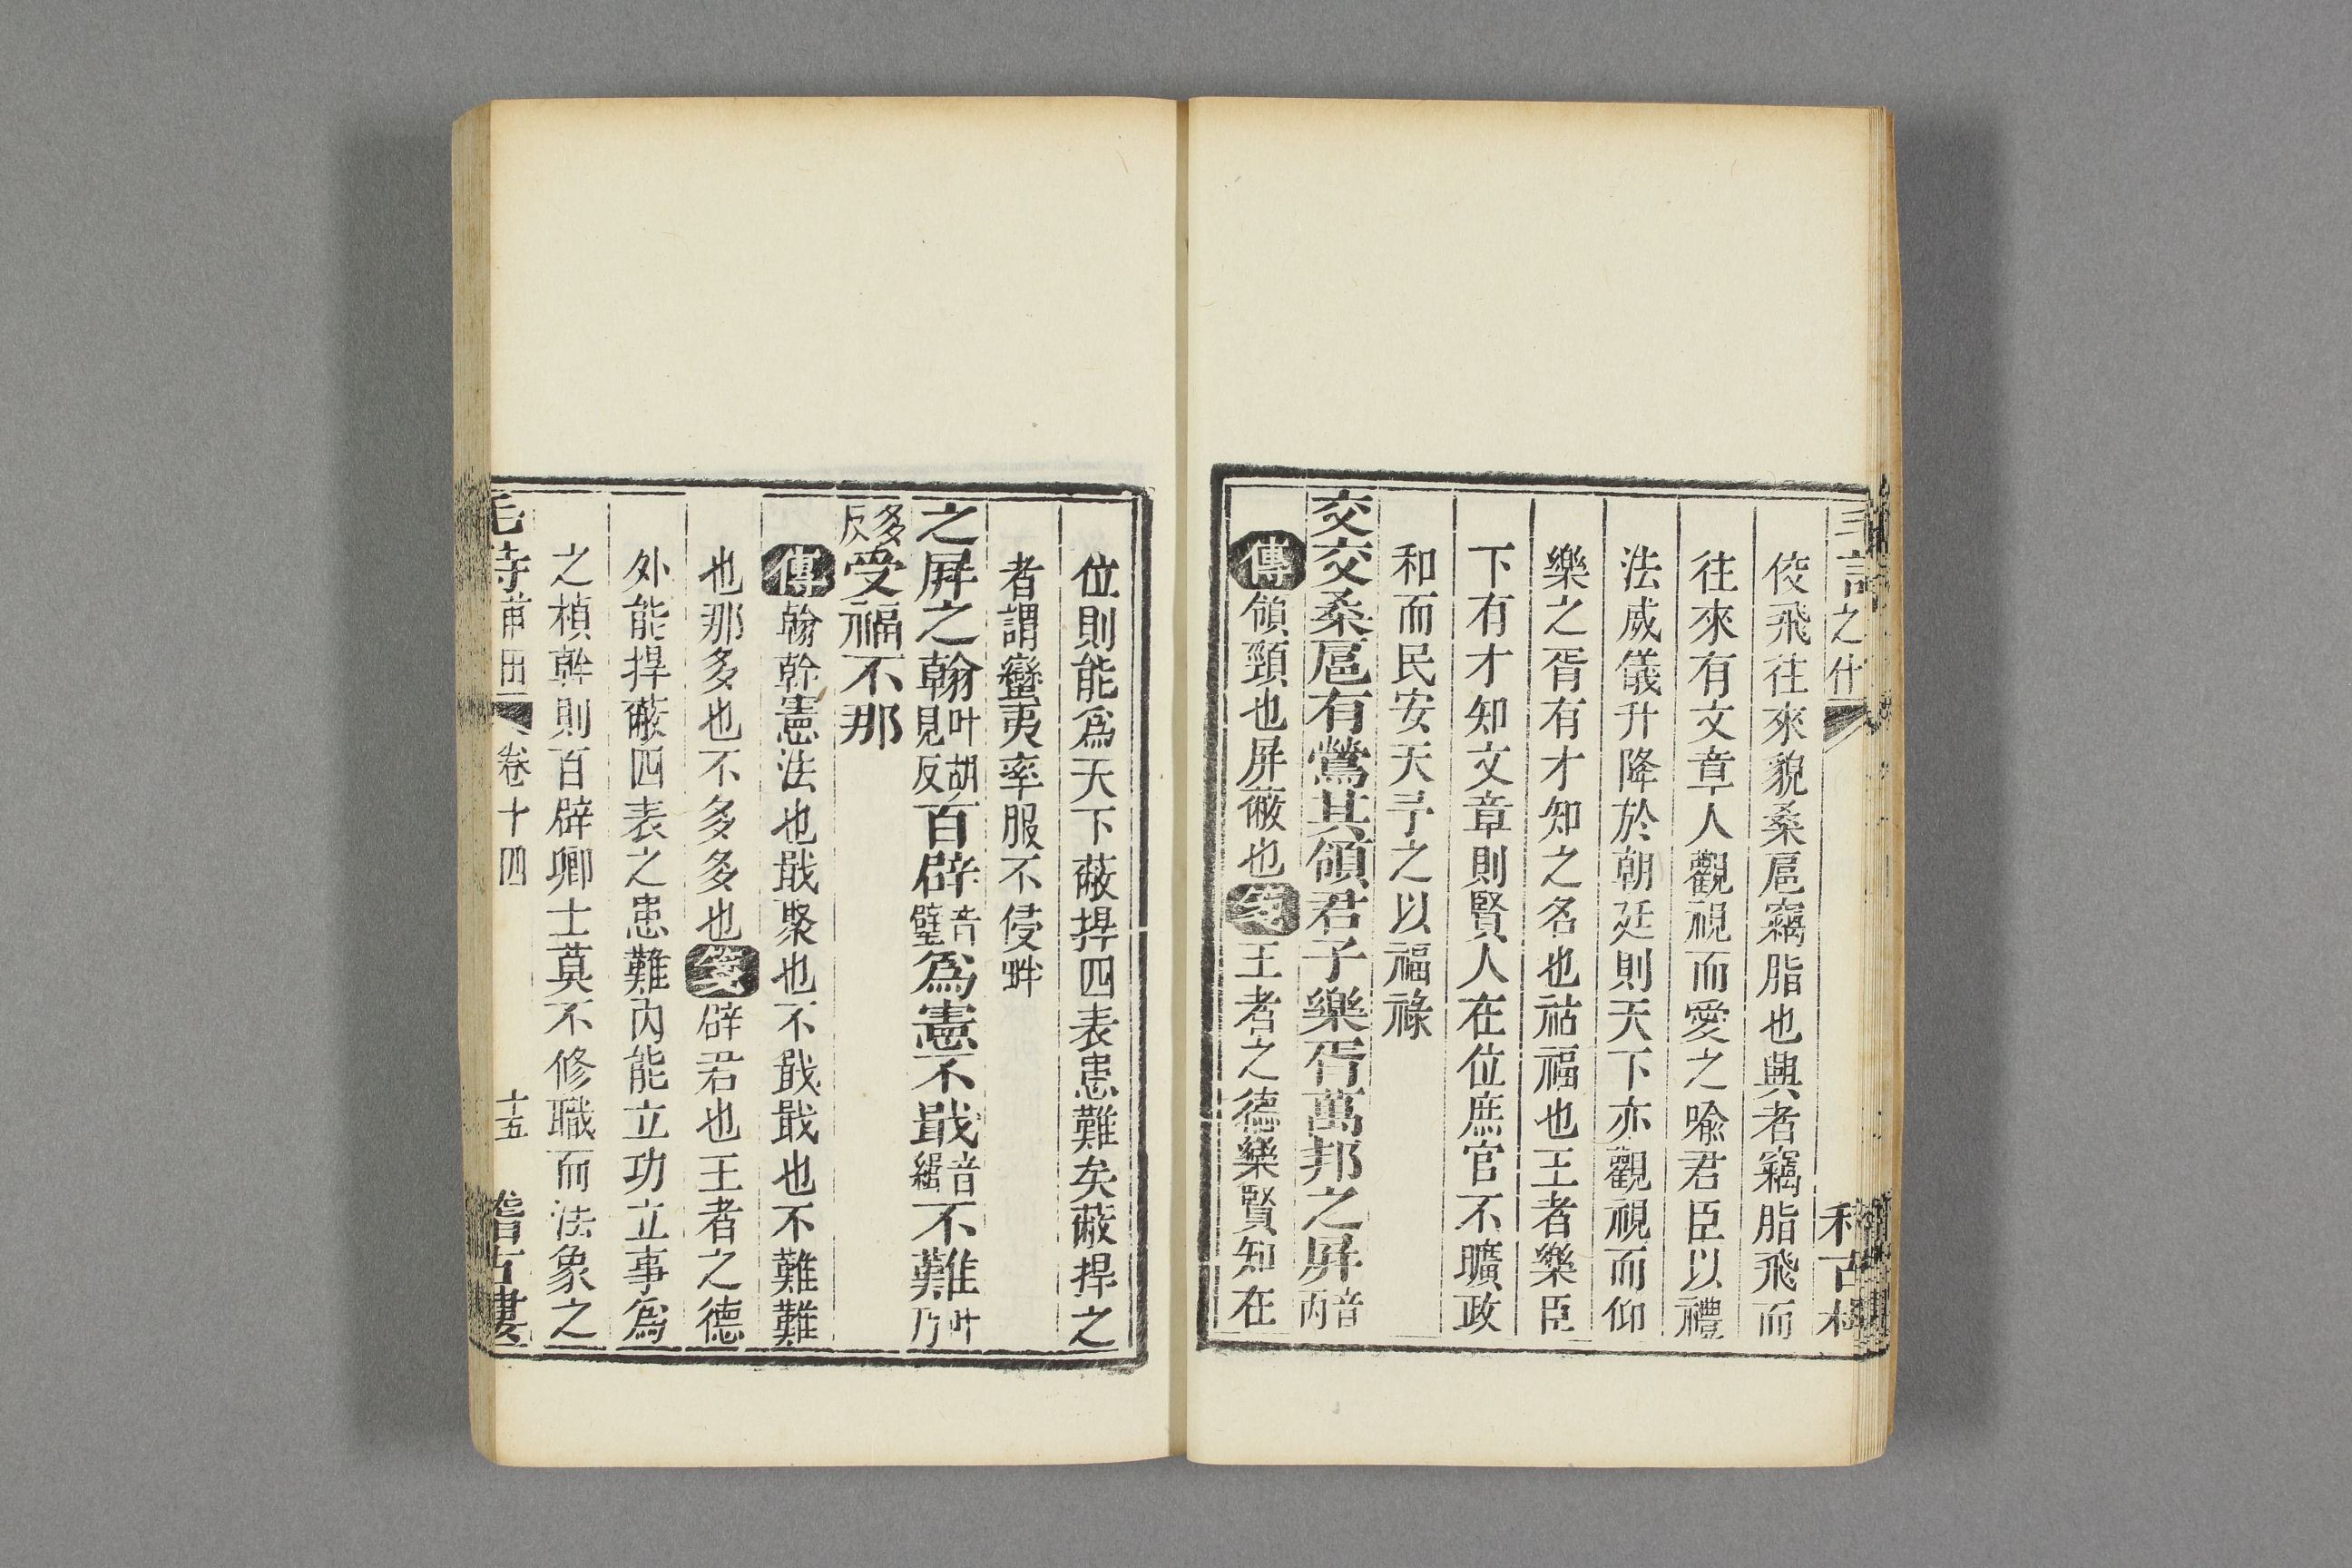 佼飛往來貌桑扈竊脂也興者竊脂飛而
往來有文章人觀視而愛之喻君臣以禮
法威儀升降於朝廷則天下亦觀視而仰
樂之胥有才知之名也祜福也王者樂臣
下有才知文章則賢人在位庶官不曠政
和而民安天予之以福祿
交交桑扈有鶯其領君子樂胥萬邦之屏音丙
傳領頸也屏蔽也箋王者之德樂賢知在
位則能爲天下蔽捍四表患難矣蔽捍之
者謂蠻夷率服不侵畔
之屏之翰叶胡見反百辟音璧爲憲不戢音緝不難叶乃
多反受福不那
傳翰幹憲法也戢聚也不戢戢也不難難
也那多也不多多也箋辟君也王者之德
外能捍蔽四表之患難內能立功立事爲
之楨幹則百辟卿士莫不修職而法象之
毛詩 甫田 卷十四 十五 稽古樓